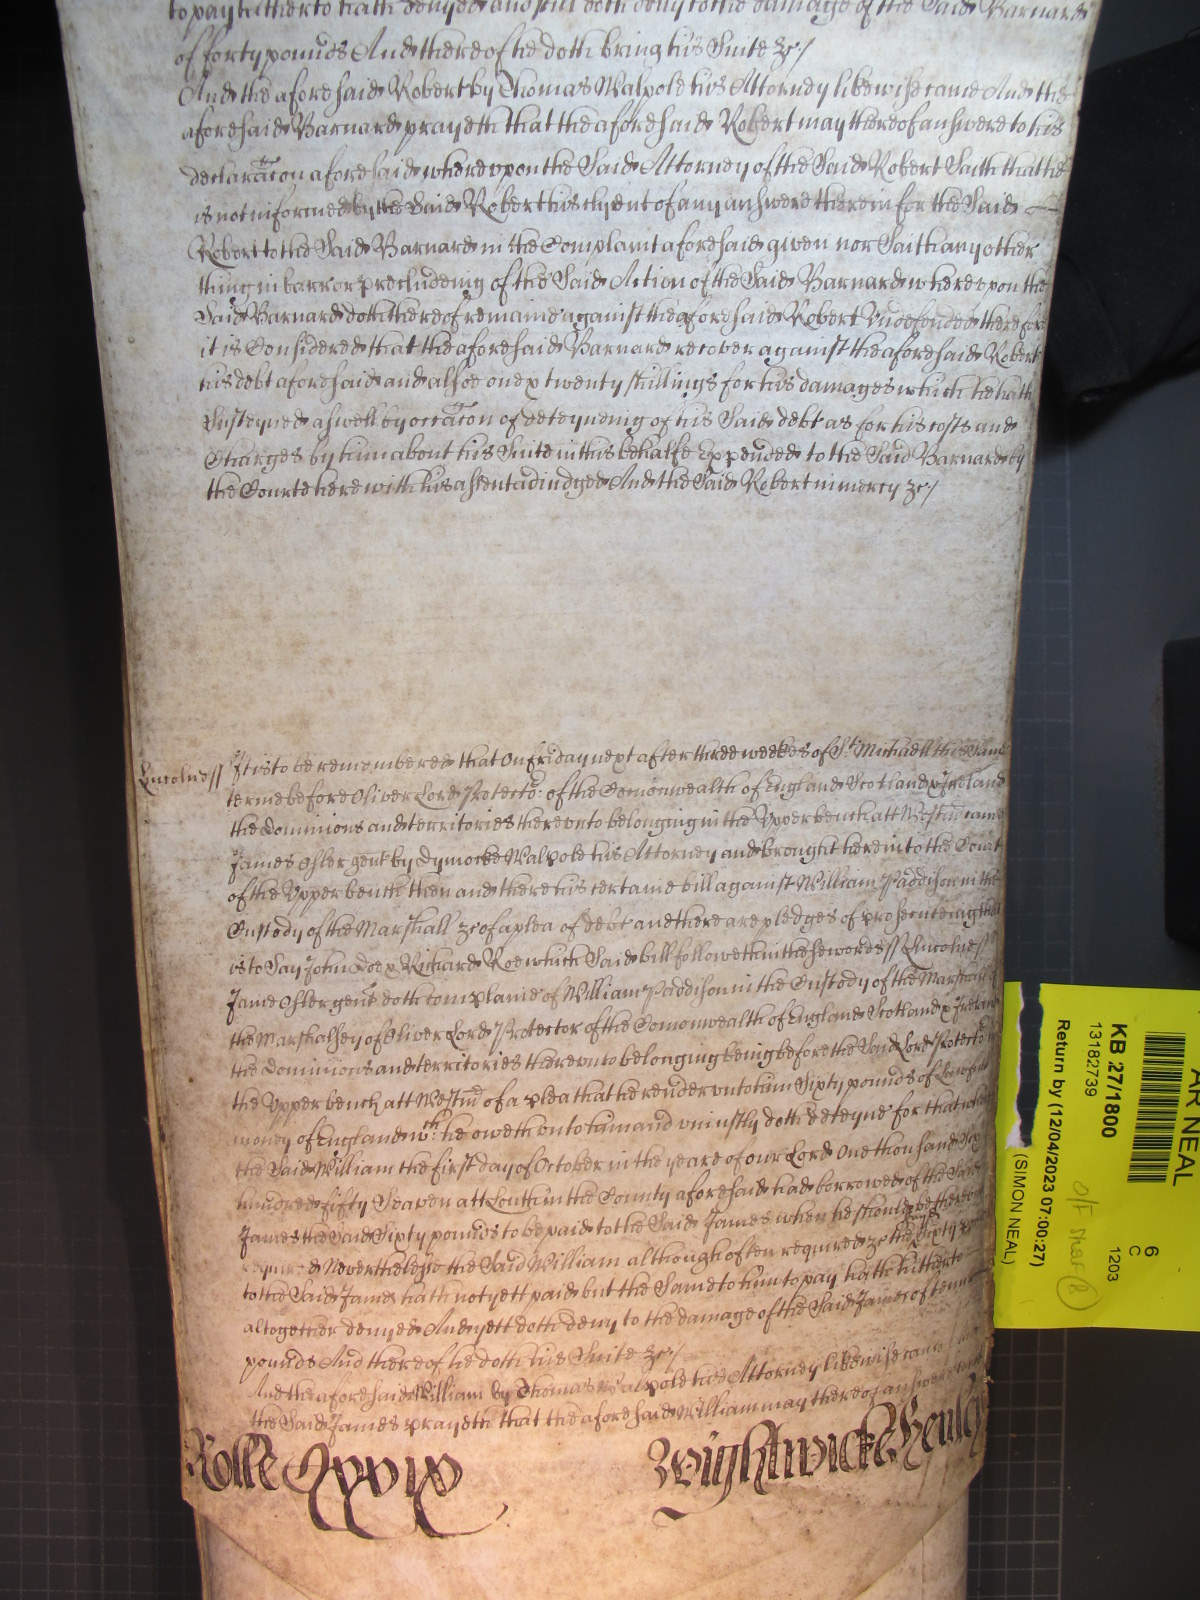 to pay hitherto hath denyed and still doth deny to the damage of the Said Barnard
of forty pounds And thereof he doth bring his Suite &c/
And the aforesaid Robert by Thomas Walpole his Attorney likewise came And the
aforesaid Barnard prayeth that the aforesaid Robert may thereof answere to his
declaracon aforesaid whereupon the Said Attorney of the Said Robert Saith that he
is not informed by the Said Robert his clyent of any answere therein for the Said
Robert to the Said Barnard in the Complaint aforesaid given nor Saith any other
thing in barr or precludeing of the Said Action of the Said Barnard whereupon the
Said Barnard doth thereof remaine against the aforesaid Robert Undefended therefore
it is Considered that the aforesaid Barnard recover against the aforesaid Robert
his debt aforesaid and alsoe one & twenty shillings for his damages which he hath
Susteyned aswell by occacon of deteyneing of his Said debt as for his costs and
Charges by him about his Suite in this behalfe Expended to the Said Barnard by
the Courte here with his assent adiudged And the Said Robert in mercy &c/
Lincolne// It is to be remembered that On friday next after three weekes of St. Michaell this Same
terme before Oliver Lord Protector of the Comonwealth of England Scotland & Ireland
the dominions and territories thereunto belonging in the Upper bench att Westmr came
James Osler gent by Dymocke Walpole his Attorney and brought here into the Court
of the Upper bench then and there his certaine bill against William Paddison in the
Custody of the Marshall &c of a plea of debt and there are pledges of prosecuteing that
is to Say John Doe & Richard Roe which Said bill followeth in these words// Lincolne//
Jame Osler gent doth complaine of William Paddison in the Custody of the Marshall of
the Marshalsey of Oliver Lord Protector of the Comonwealth of England Scotland & Ireland
the Dominions and territories thereunto belonging being before the Said Lord Protector in
the Upper bench att Westmr of a plea that he render unto him Sixty pounds of Lawfull
money of England wch. he oweth unto him and uniustly doth deteyne for that when
the Said William the first day of October in the yeare of our Lord One thousand Six
hundred fifty Seaven att Louth in the County aforesaid had borrowed of the Said
James the Said Sixty pounds to be paid to the Said James when he should be thereunto
required Neverthelesse the Said William although often required &c the Said Sixty pounds
to the Said James hath not yett paid but the Same to him to pay hath hitherto
altogether denyed And yett doth deny to the damage of the Said James of tenn
pounds And thereof he doth his Suite &c/
And the aforesaid William by Thomas Walpole his Attorney likewise came
the Said James prayeth that the aforesaid William may thereof answere
Rolle Cxxvix
Wightwicke Henley
AR NEAL
KB 27/1800
13182739
Return by (12/04/2023 07:00:27)
(SIMON NEAL)
6
C
1203